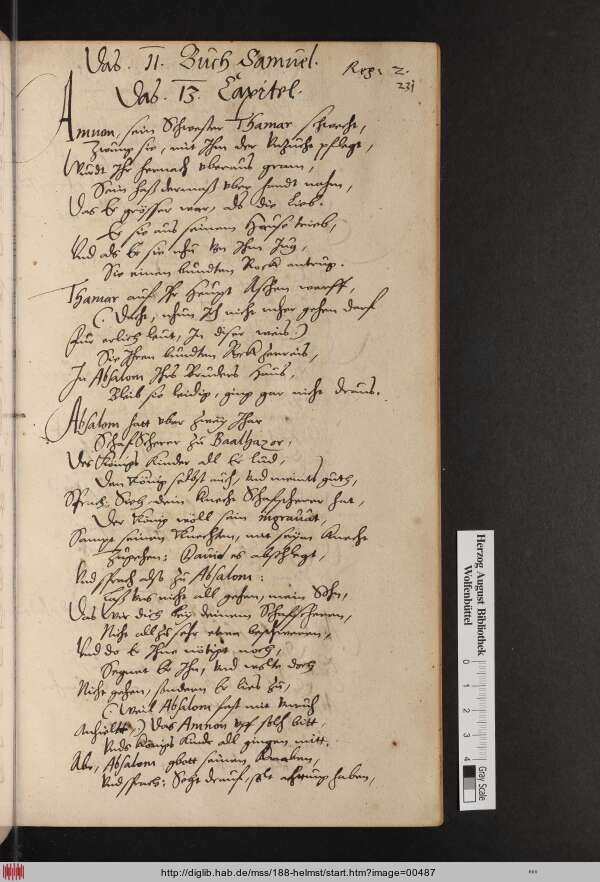 Das. II. Buch Samuel.
Reg: 2.
231
Das. 13. Capitel.
Amnon, sein Schwester Thamar schwecht,
Zwung sie, mit Ihm der Unzucht pflegt,
Undt Ihr hernach uberaus gram,
Sein haß dermaß uber handt nahm,
Das Er grösser war, als die Lieb.
Er sie aus seinem Hause trieb,
Und als Er sie nhu von Ihm Jug,
Sie einen bundten Rock antrug.
Thamar auf Ihr Heupt Aschen warff,
(Dacht, nhun Ich nicht mher gehen darf
Für erlich leut, In diser weis)
Sie Ihren bundten Rock zerreis,
In Absalom Ihrs Bruders Haus,
Bleib sie leidig, ging gar nicht draus.
Absalom hatt uber zwey Jhar
SchafScherer zu Baalhazor,
Des Königs Kinder all Er lud,
Den König selbst auch, und meints guth,
Sprach: Sieh dein Knecht Schafscherer hat,
Der König wöll sein
Sampt seinen Knechten, mit seim Knecht
Zugehen: David es abschlegt,
Und sprach alß zu Absalom:
Laß uns nicht all gehen, mein Sohn,
Das wir dich bey deinem Schafscheren,
Nicht allzu sehr etwa beschweren,
Und do Er Ihne nötigt noch,
Segnet Er Ihn, und wolte doch
Nicht gehen, sondern Er lies zu,
(Weil Absalom fast mit unruh
Anhielt,) Das Amnon uff solch bitt,
Unds Königs Kinder all gingen mitt.
Aber, Absalom gbott seinen Knaben,
Und sprach: Seht drauf, achtung haben,
Herzog August Bibliothek
Wolfenbüttel
0 1 2 3 4
Gray Scale
http://diglib.hab.de/mss/188-helmst/start.htm?image=00487